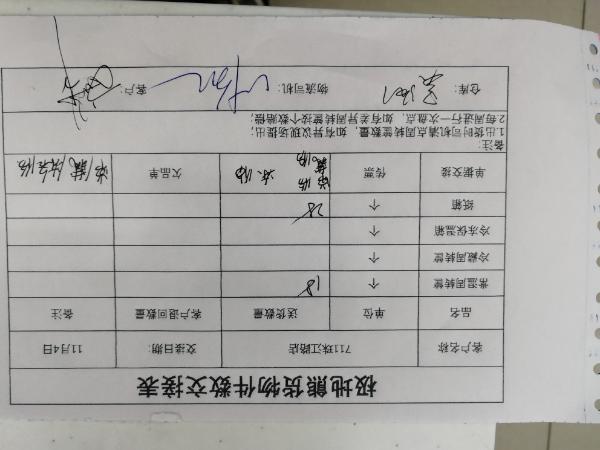 极地熊货物件数交接表
客户名称 711珠江路店 交接日期: 11月4日
品名 单位 送货数量 客户退回数量 备注
常温周转筐 个 18
冷藏周转筐 个
冷冻保温箱 个
纸箱 个 28
单据交接 传票 欠品单
备注:
1.出货时司机清点周转筐数量，如有异议现场提出;
2.每周进行一次盘点，如有差异周转筐按个数赔偿;
仓库: 物流司机: 客户: